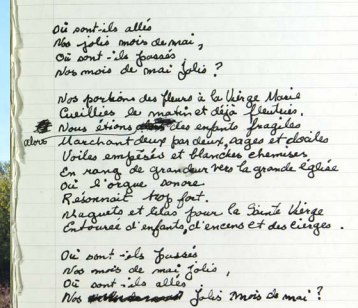 Où sont-ils allés
Nos jolis mois de mai,
Où sont-ils passés
Nos mois de mai jolis ?
Nos portions des fleurs à la Vierge Marie
Cueillies le matin et déjà fleuries.
Nous étions des enfants fragiles
alors Marchant deux par deux, sages et dociles
Voiles empesés et blanches chemises
En rang de grandeur vers la grande église
Où l'orgue sonore
Résonnait trop fort.
Muguets et lilas pour la Sainte Vierge
Entourée d'enfants, d'encens et des cierges.
Où sont-ils passés
Nos mois de mai jolis,
Où sont-ils allés
Nos jolis mois de mai ?